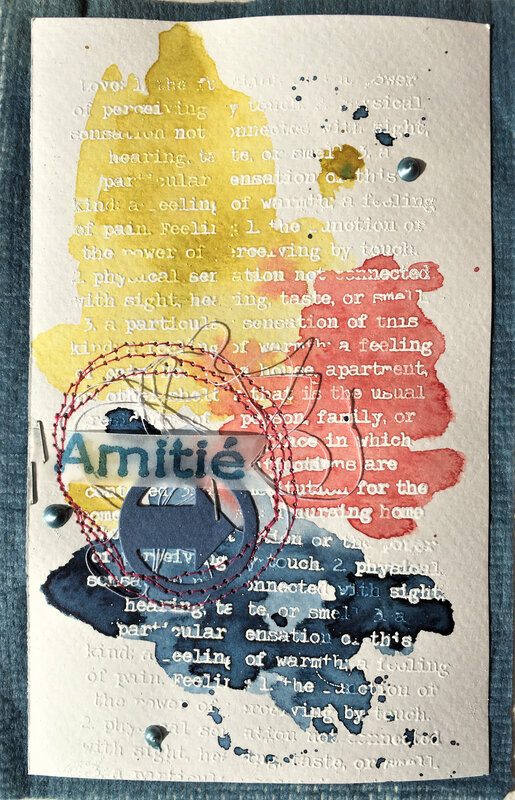 Love: 1. the
power
of perceiving by touch. physical
sensation not connected with sight,
hearing, taste, or smell 3. a
particular sensation of this
kind: a feeling of warmth; a feeling
of pain. Feeling 1. the function or
the power of perceiving by touch.
2. physical sensation not connected
with sight, hearing, taste, or smell.
3. a particular sensation of this
kind: a feeling of warmth; a feeling
a house, apartment,
other shelter that is the usual
person, family, or
in which
are
for the
home
Amitié
or the power
of perceiving touch. 2. physical
sensation connected with sight,
hearing taste, or smell 3. a
particular sensation of this
kind: a feeling of warmth; a feeling
of pain. Feeling 1. the function or
the power of perceiving by touch.
physical sensation not connected
with sight, hearing, taste, or smell
3. a particular sensation of this